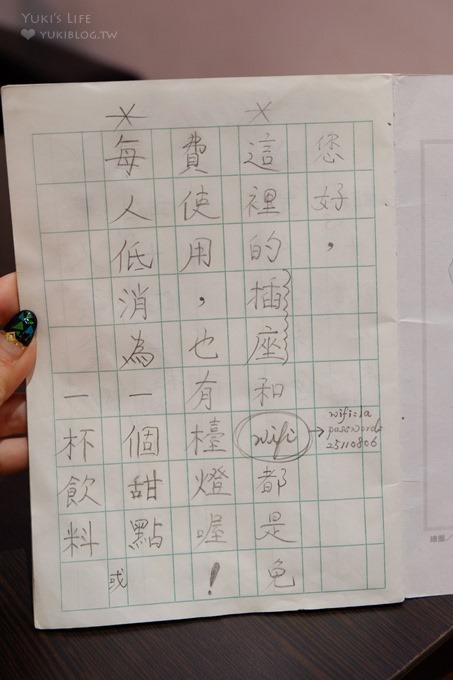 YUKI'S LIFE
YUKIBLOG.TW
您好，
這裡的插座和wifi都是免
費使用，也有檯燈喔！
每人低消為一個甜點或
一杯飲料
wifi:1a
password:
25110806